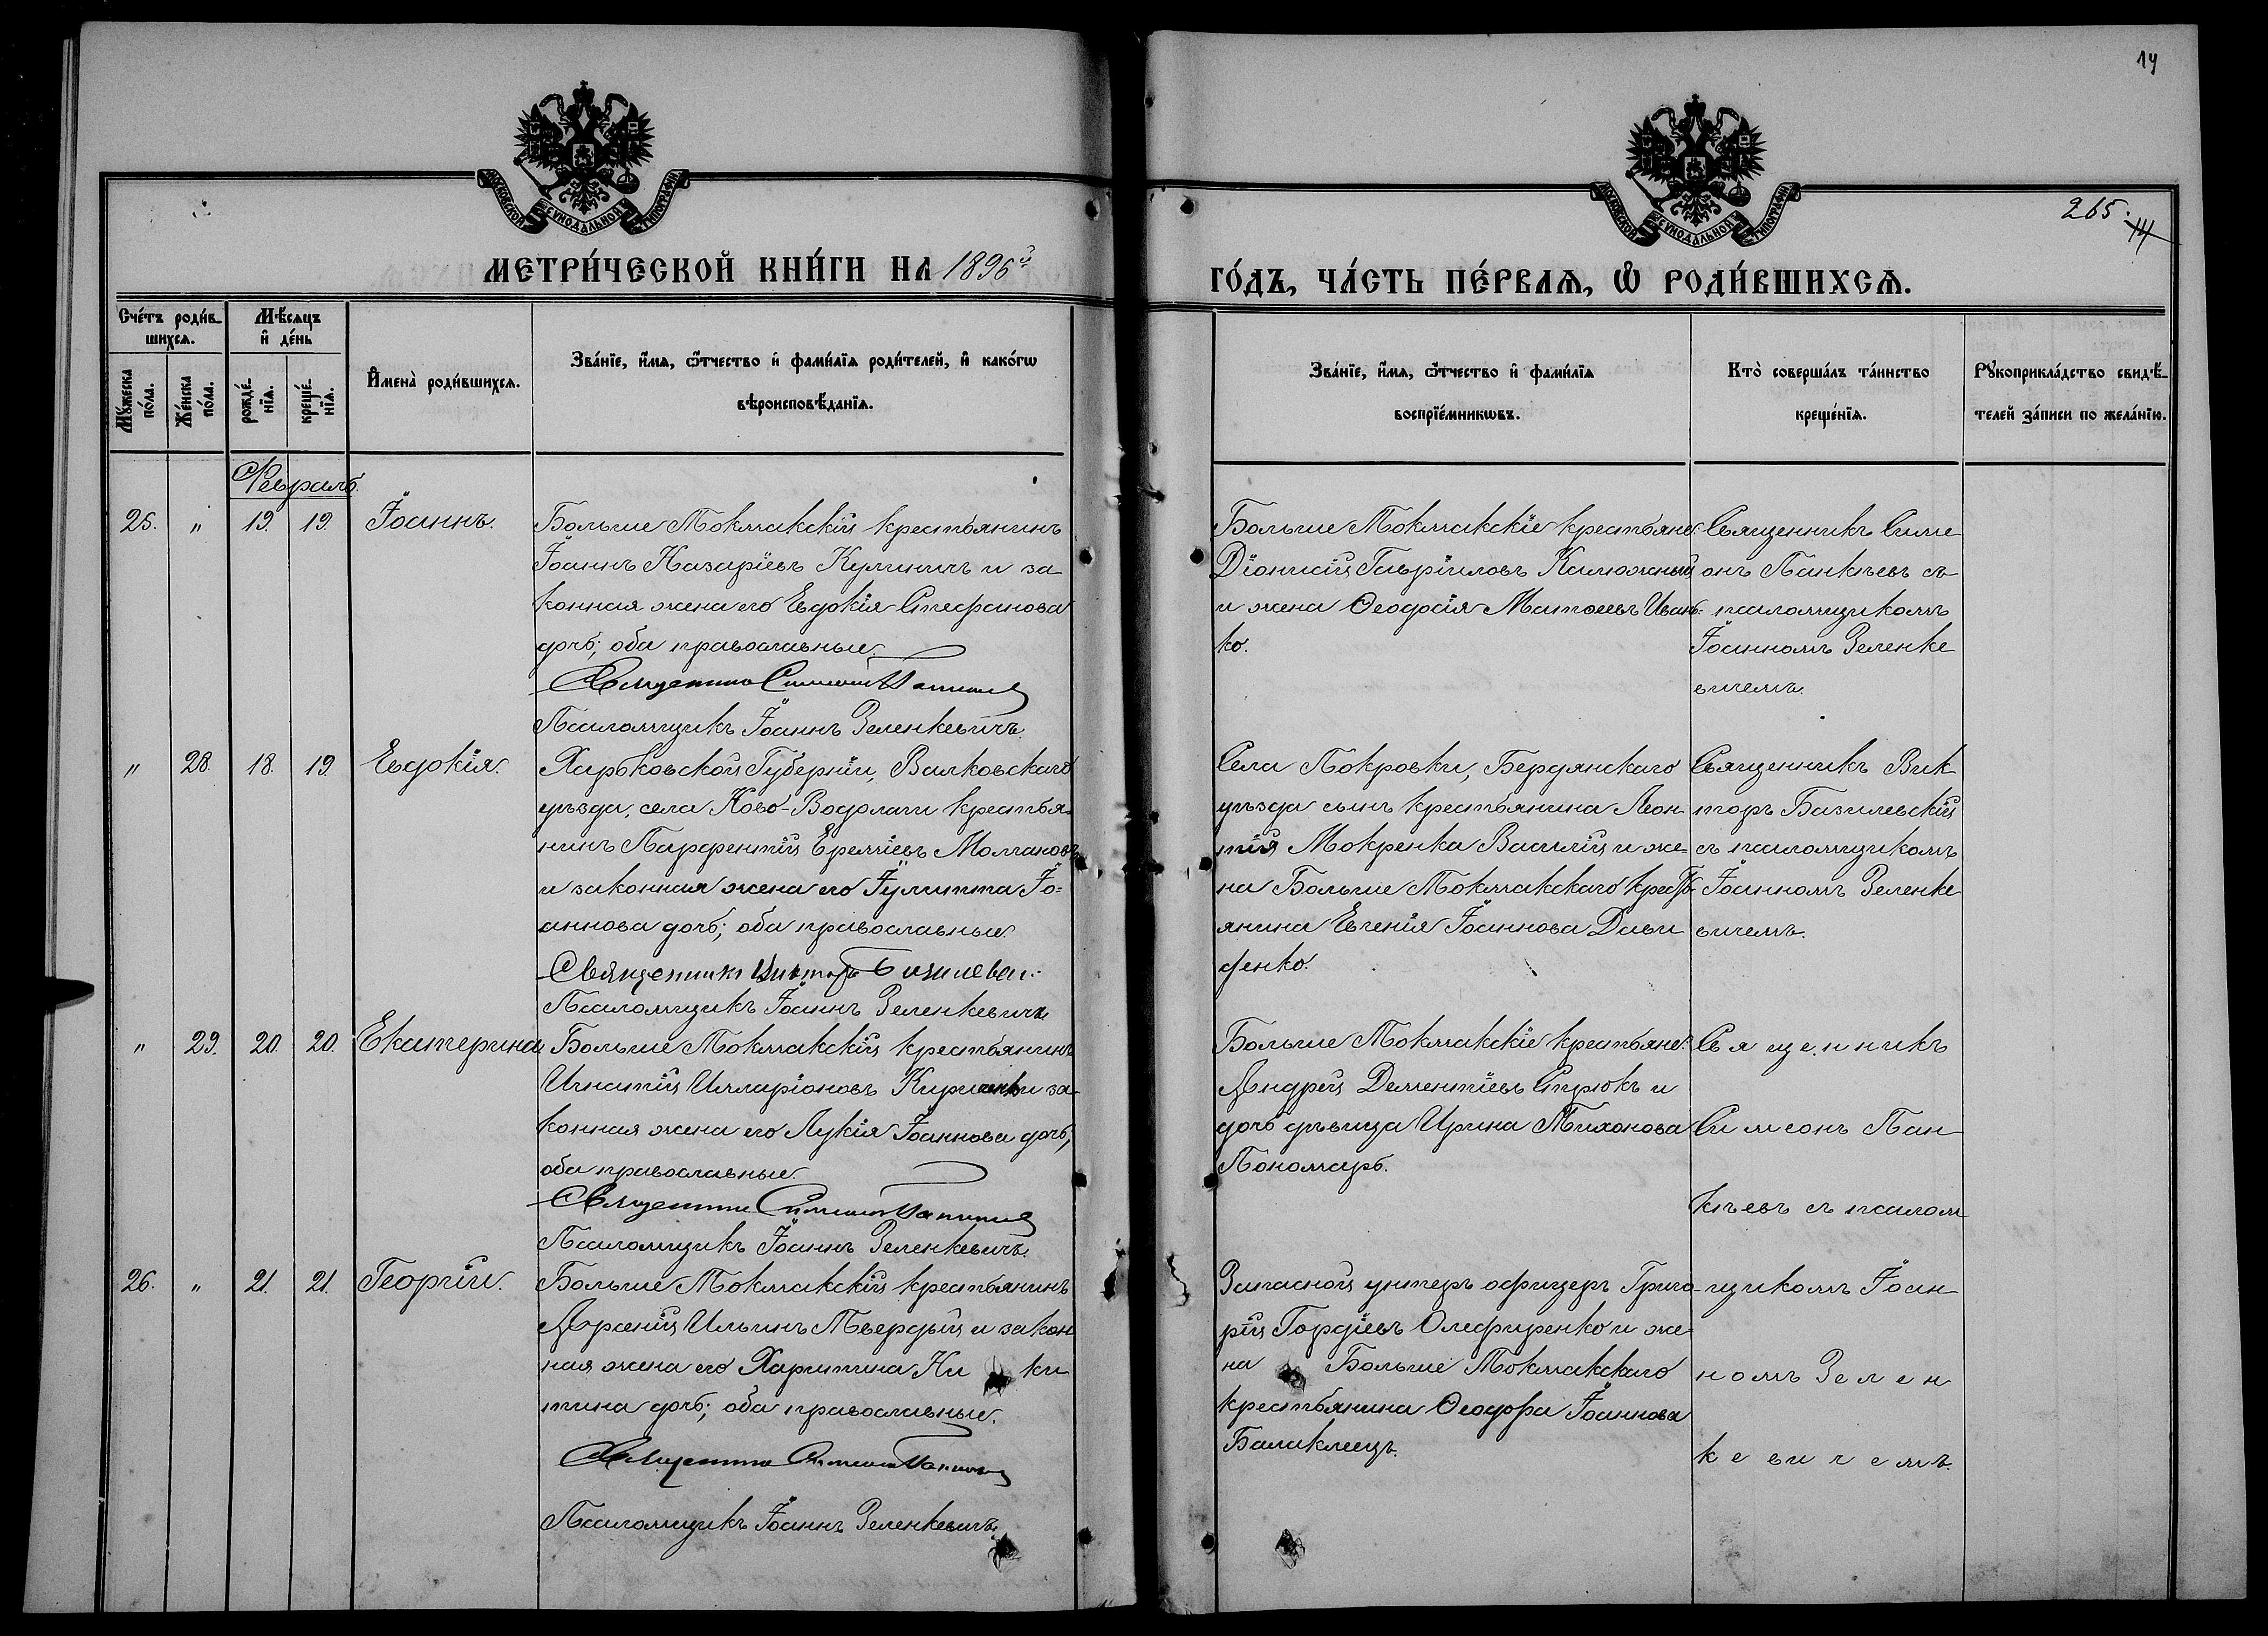 14
МОСКОВСКОЙ СѴНОДАЛЬНОЙ ТИПОГРАФІИ
МОСКОВСКОЙ СѴНОДАЛЬНОЙ ТИПОГРАФІИ
265.
МЕТРИ́ЧЕСКОЙ КНИ́ГИ НА 1896й
ГО́ДЪ, ЧА́СТЬ ПЕ́РВАѦ, Ѡ҆ РОДИ́ВШИХСѦ.
Сче́тъ роди́в-
шихсѧ.
Мѣ́сѧцъ
и҆ де́нь
Мꙋ́жеска
по́ла.
Же́нска
по́ла.
рожде́-
нїѧ.
креще́-
нїѧ.
И҆мена̀ роди́вшихсѧ.
Зва́нїе, и҆́мѧ, ѻ҆́тчество и҆ фами́лїѧ роди́телей, и҆ како́гѡ
вѣроисповѣ́данїѧ.
Зва́нїе, и҆́мѧ, ѻ҆́тчество и҆ фами́лїѧ
воспрїе́мникѡвъ.
Кто̀ соверша́лъ та́инство
креще́нїѧ.
Рꙋкоприкла́дство свидѣ́-
телей за́писи по жела́нїю.
Февраль.
25. " 19. 19. Іоаннъ.
Больше Токмакскій крестьянинъ
Іоаннъ Назаріевъ Кулиничъ и за-
конная жена его Евдокія Стефанова
дочь; оба православные.
Священникъ Симеонъ Панкѣевъ
Псаломщикъ Іоаннъ Зеленкевичъ.
Больше Токмакскіе крестьяне:
Діонисій Гавріиловъ Калюжный
и жена Ѳеодосія Матѳеевъ Ивань-
ко.
Священникъ Симе
онъ Панкѣевъ съ
псаломщикомъ
Іоанномъ Зеленке
вичемъ.
" 28. 18. 19. Евдокія.
Харьковской Губерніи, Валковскаго
уѣзда, села Ново-Водолаги крестья-
нинъ Парфентій Ереміевъ Молчановъ
и законная жена его Іулитта Іо-
аннова дочь; оба православные.
Священникъ Викторъ Базилевск:
Псаломщикъ Іоаннъ Зеленкевичъ
Села Покровки, Бердянскаго
уѣзда сынъ крестьянина Леон-
тія Мокренка Василій и же-
на Больше Токмакскаго кресть-
янина Евгенія Іоаннова Дави
денко.
Священникъ Вик
торъ Базилевскій
съ псаломщикомъ
Іоанномъ Зеленке
вичемъ.
" 29. 20. 20. Екатерина
Больше Токмакскій крестьянинъ
Игнатій Илларіоновъ и за-
конная жена его Лукія Іоаннова дочь,
оба православные.
Священникъ Симеонъ Панкѣевъ
Псаломщикъ Іоаннъ Зеленкевичъ.
Больше Токмакскіе крестьяне:
Андрей Дементіевъ Стрюкъ и
дочь дѣвица Ирина Тихонова
Пономарь.
Священникъ
Симеонъ Пан
кѣевъ съ псалом
26. " 21. 21. Георгій.
Больше Токмакскій крестьянинъ
Арсеній Ильинъ Твердый и закон
ная жена его Харитина Ни ки
тина дочь; оба православные.
Священникъ Симеонъ Панкѣевъ
Псаломщикъ Іоаннъ Зеленкевичъ.
Запасной унтеръ офицеръ Григо
рій Гордіевъ Олефиренко и же
на Больше Токмакскаго
крестьянина Ѳеодора Іоаннова
Балаклеецъ.
щикомъ Іоан
номъ Зелен
кевичемъ.